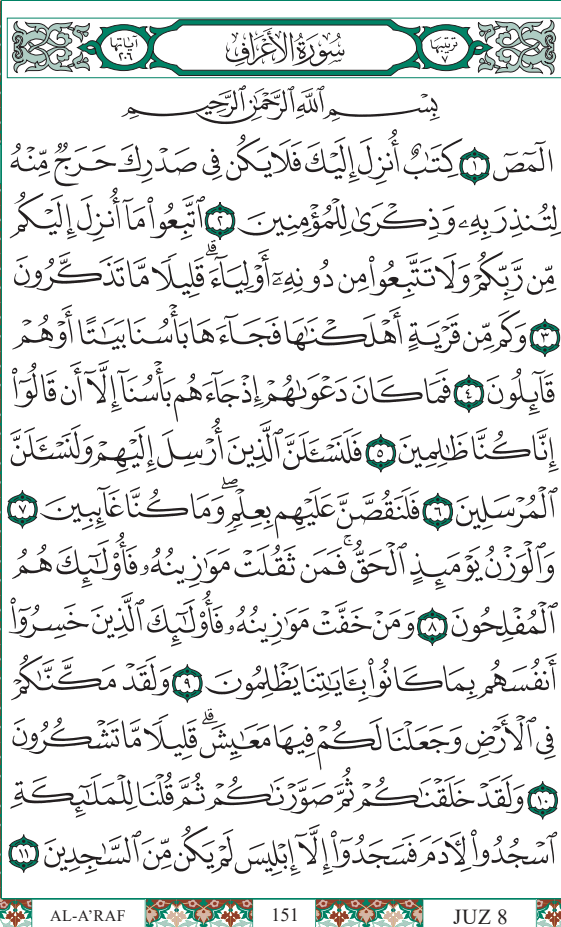 ترتيبها ٧ سُورَةُ الأَعْرَافِ آياتها ٢٠٦
بِسْمِ ٱللَّهِ ٱلرَّحْمَٰنِ ٱلرَّحِيمِ
الٓمٓصٓ ١ كِتَٰبٌ أُنزِلَ إِلَيْكَ فَلَا يَكُن فِي صَدْرِكَ حَرَجٌ مِّنْهُ
لِتُنذِرَ بِهِۦ وَذِكْرَىٰ لِلْمُؤْمِنِينَ ٢ ٱتَّبِعُوا۟ مَآ أُنزِلَ إِلَيْكُم
مِّن رَّبِّكُمْ وَلَا تَتَّبِعُوا۟ مِن دُونِهِۦٓ أَوْلِيَآءَ ۗ قَلِيلًا مَّا تَذَكَّرُونَ
٣ وَكَم مِّن قَرْيَةٍ أَهْلَكْنَٰهَا فَجَآءَهَا بَأْسُنَا بَيَٰتًا أَوْ هُمْ
قَآئِلُونَ ٤ فَمَا كَانَ دَعْوَىٰهُمْ إِذْ جَآءَهُم بَأْسُنَآ إِلَّآ أَن قَالُوٓا۟
إِنَّا كُنَّا ظَٰلِمِينَ ٥ فَلَنَسْـَٔلَنَّ ٱلَّذِينَ أُرْسِلَ إِلَيْهِمْ وَلَنَسْـَٔلَنَّ
ٱلْمُرْسَلِينَ ٦ فَلَنَقُصَّنَّ عَلَيْهِم بِعِلْمٍ ۖ وَمَا كُنَّا غَآئِبِينَ ٧
وَٱلْوَزْنُ يَوْمَئِذٍ ٱلْحَقُّ ۚ فَمَن ثَقُلَتْ مَوَٰزِينُهُۥ فَأُو۟لَٰٓئِكَ هُمُ
ٱلْمُفْلِحُونَ ٨ وَمَنْ خَفَّتْ مَوَٰزِينُهُۥ فَأُو۟لَٰٓئِكَ ٱلَّذِينَ خَسِرُوٓا۟
أَنفُسَهُم بِمَا كَانُوا۟ بِـَٔايَٰتِنَا يَظْلِمُونَ ٩ وَلَقَدْ مَكَّنَّٰكُمْ
فِي ٱلْأَرْضِ وَجَعَلْنَا لَكُمْ فِيهَا مَعَٰيِشَ ۗ قَلِيلًا مَّا تَشْكُرُونَ
١٠ وَلَقَدْ خَلَقْنَٰكُمْ ثُمَّ صَوَّرْنَٰكُمْ ثُمَّ قُلْنَا لِلْمَلَٰٓئِكَةِ
ٱسْجُدُوا۟ لِـَٔادَمَ فَسَجَدُوٓا۟ إِلَّآ إِبْلِيسَ لَمْ يَكُن مِّنَ ٱلسَّٰجِدِينَ ١١
AL-A'RAF 151 JUZ 8